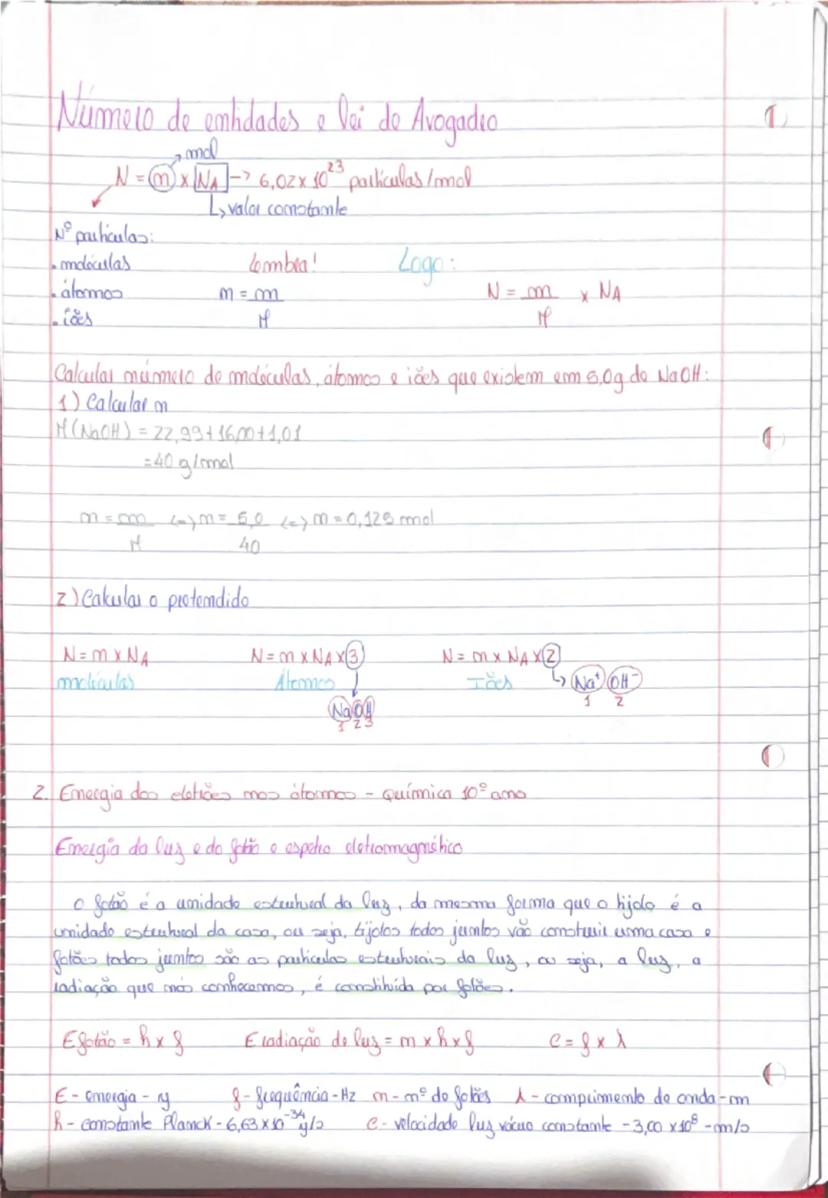 Número de entidades e lei de Avogadro
mol
N = n x NA -> 6,02 x 10²³ partículas/mol
↳ valor constante
Nº partículas:
. moléculas Lembra! Logo:
. átomos n = m N = m x NA
. iões M M
Calcular número de moléculas, átomos e iões que existem em 5,0g de NaOH:
1) Calcular n
M(NaOH) = 22,99+16,00+1,01
= 40 g/mol
n = m (=) n = 5,0 (=) n = 0,125 mol
M 40
2) Calcular o pretendido
N = n x NA N = n x NA x 3 N = n x NA x 2
moléculas Átomos Iões ↳ Na⁺ OH⁻
1 2
NaOH
1 2 3
2. Energia dos eletrões nos átomos - química 10º ano
Energia da luz e do fotão e espetro eletromagnético
O fotão é a unidade estrutural da luz, da mesma forma que o tijolo é a
unidade estrutural da casa, ou seja, tijolos todos juntos vão construir uma casa e
fotões todos juntos são as partículas estruturais da luz, ou seja, a luz, a
radiação que nós conhecemos, é constituída por fotões.
Efotão = h x f E radiação de luz = n x h x f c = f x λ
E - energia - J f - frequência - Hz n - nº de fotões λ - comprimento de onda - m
h - constante Planck - 6,63 x 10⁻³⁴ J/s c - velocidade luz vácuo constante - 3,00 x 10⁸ - m/s